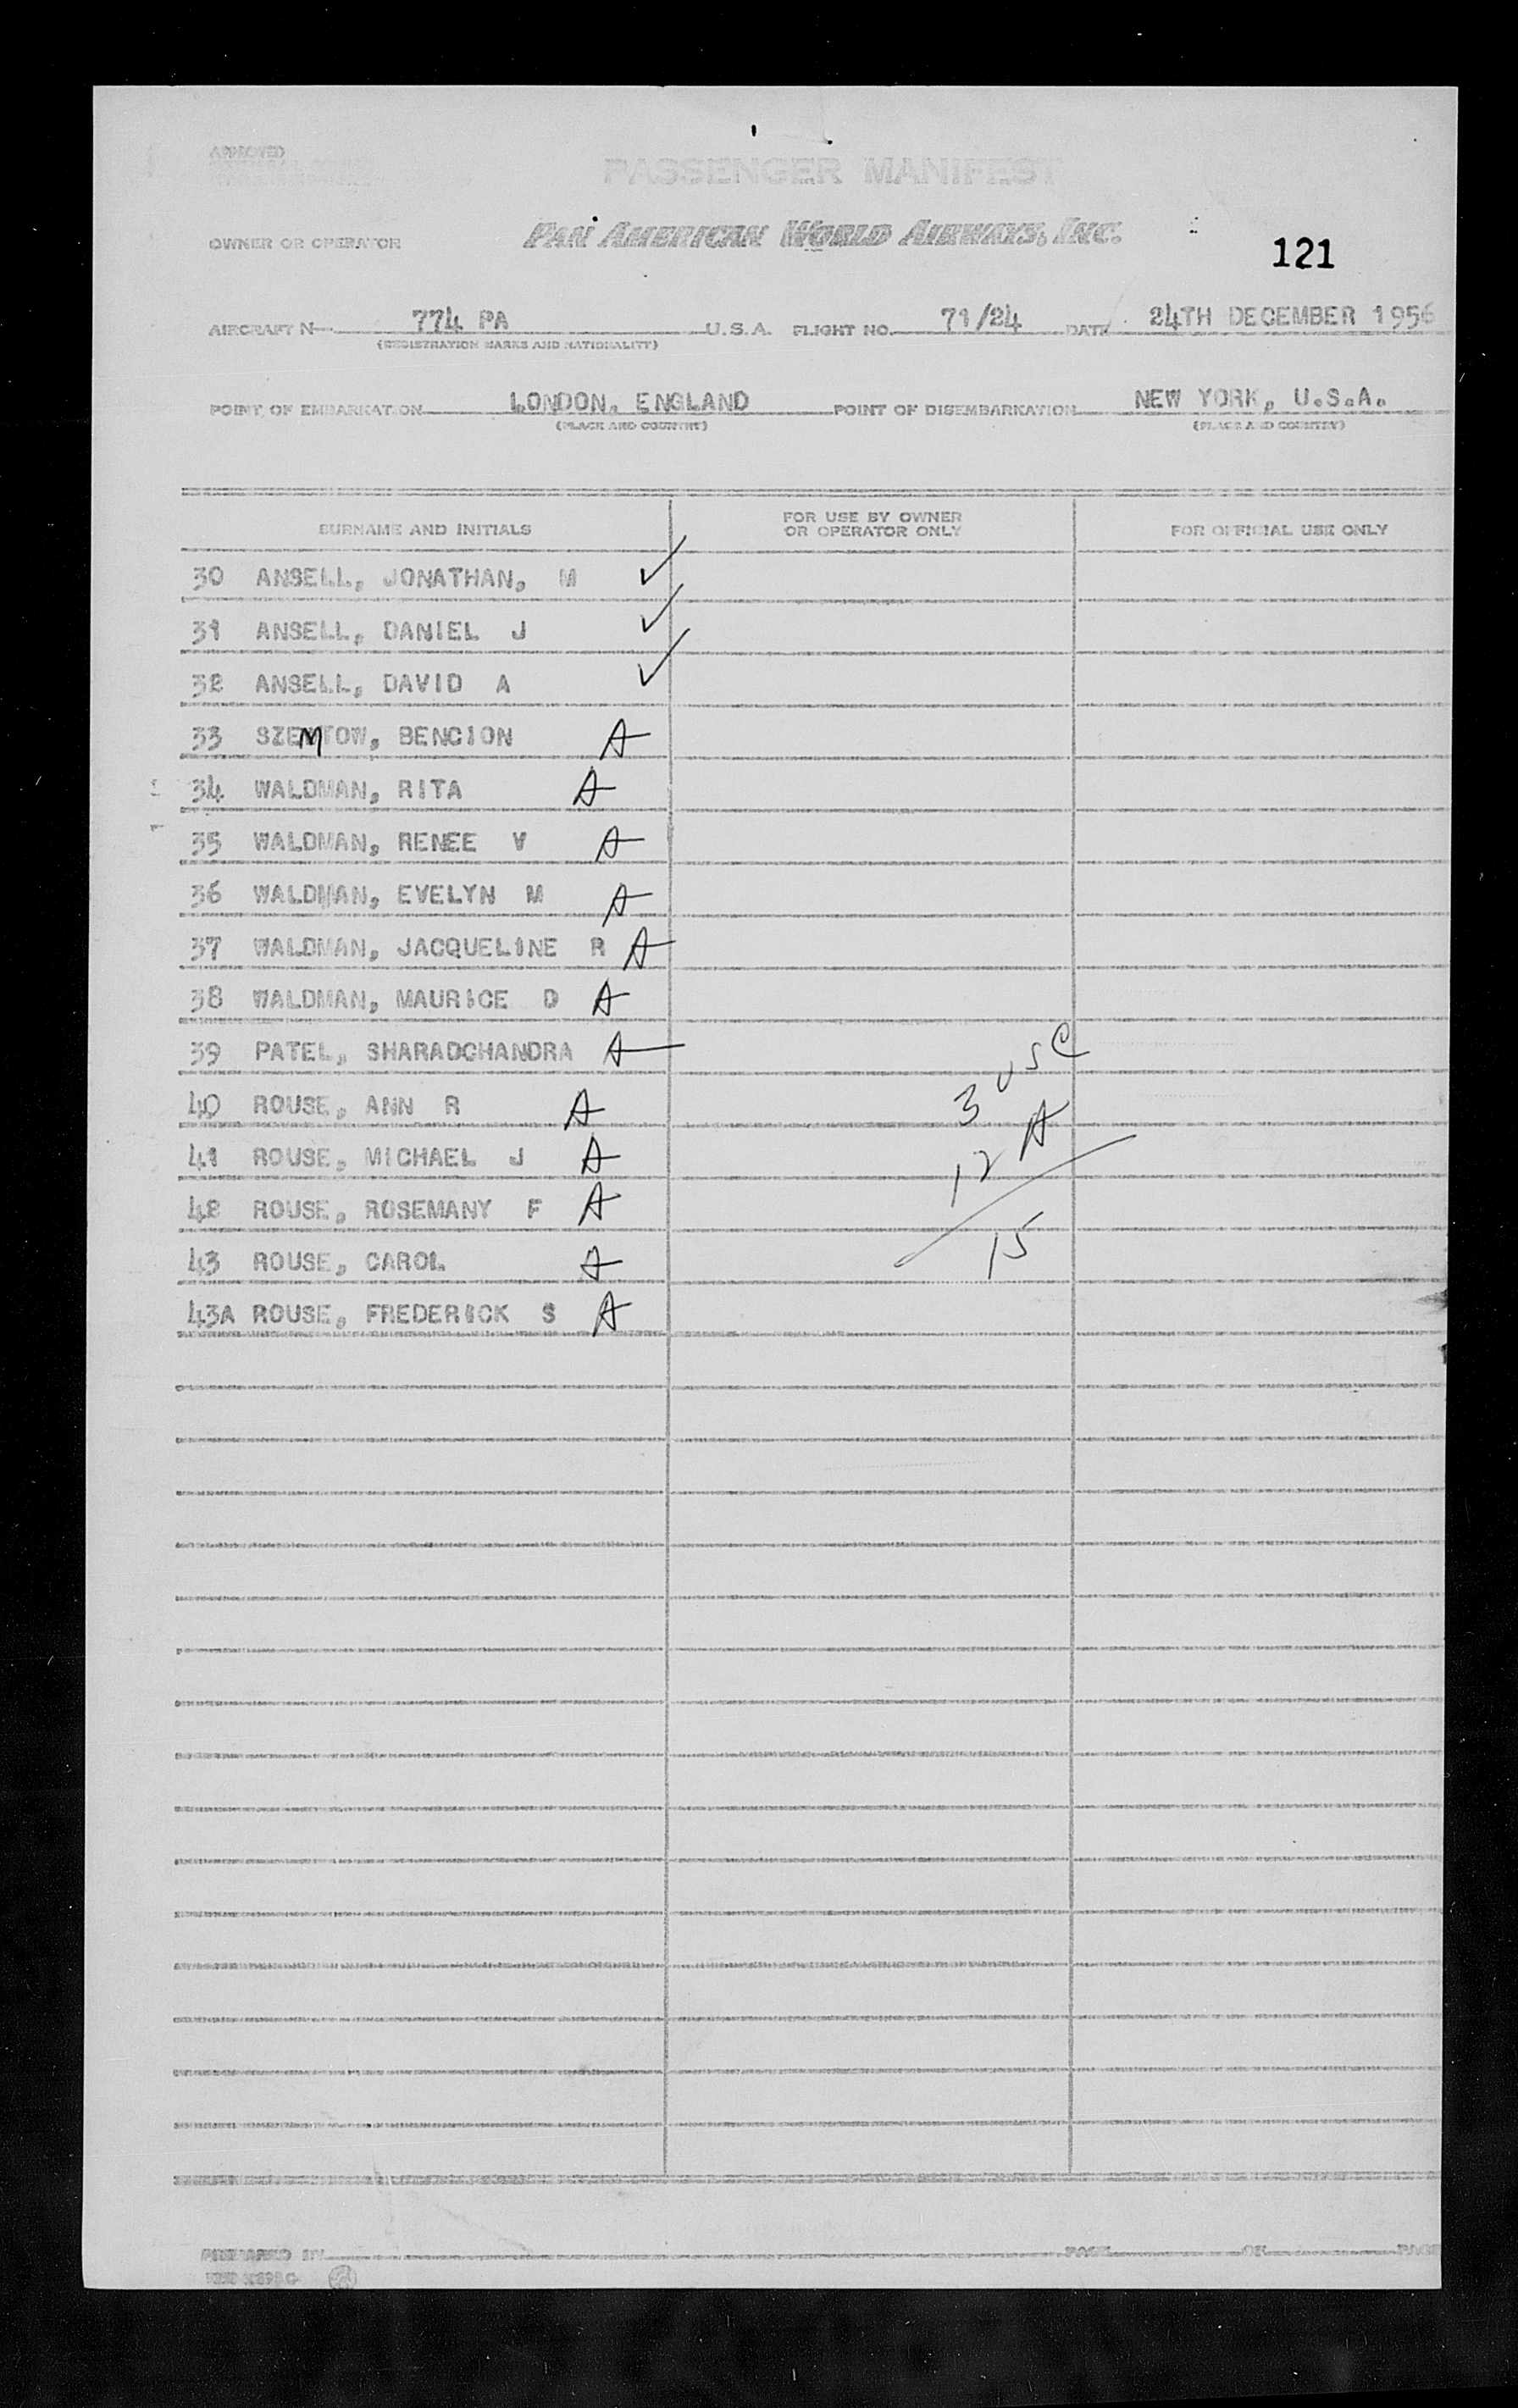 APPROVED
PASSENGER MANIFEST
OWNER OR OPERATOR PAN AMERICAN WORLD AIRWAYS, INC.
121
AIRCRAFT N— 774 PA U.S.A. FLIGHT NO. 71/24 DATE 24TH DECEMBER 1956
(REGISTRATION MARKS AND NATIONALITY)
POINT OF EMBARKATION LONDON, ENGLAND POINT OF DISEMBARKATION NEW YORK, U.S.A.
(PLACE AND COUNTRY) (PLACE AND COUNTRY)
SURNAME AND INITIALS FOR USE BY OWNER OR OPERATOR ONLY FOR OFFICIAL USE ONLY
30 ANSELL, JONATHAN, M ✓
31 ANSELL, DANIEL J ✓
32 ANSELL, DAVID A ✓
33 SZEMTOW, BENCION A
34 WALDMAN, RITA A
35 WALDMAN, RENEE V A
36 WALDMAN, EVELYN M A
37 WALDMAN, JACQUELINE R A
38 WALDMAN, MAURICE D A
39 PATEL, SHARADCHANDRA A
40 ROUSE, ANN R A
3 USC
41 ROUSE, MICHAEL J A
12 A
42 ROUSE, ROSEMANY F A
43 ROUSE, CAROL A
15
43A ROUSE, FREDERICK S A
PREPARED BY PAGE OF PAGE